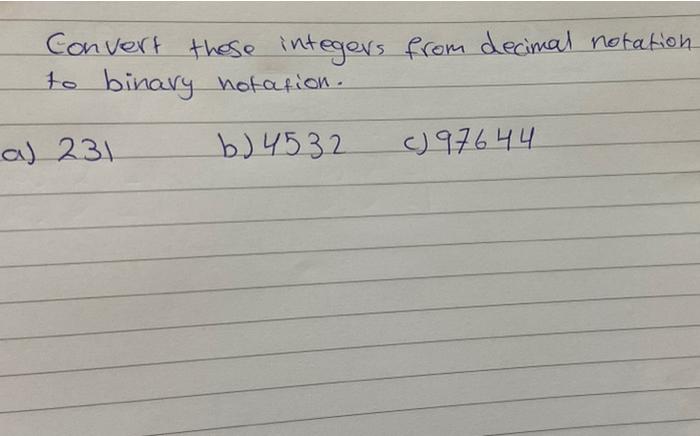 Convert these integers from decimal notation
to binary notation.
a) 231 b) 4532 c) 97644